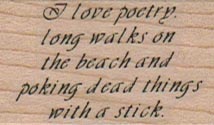 I love poetry.
long walks on
the beach and
poking dead things
with a stick.